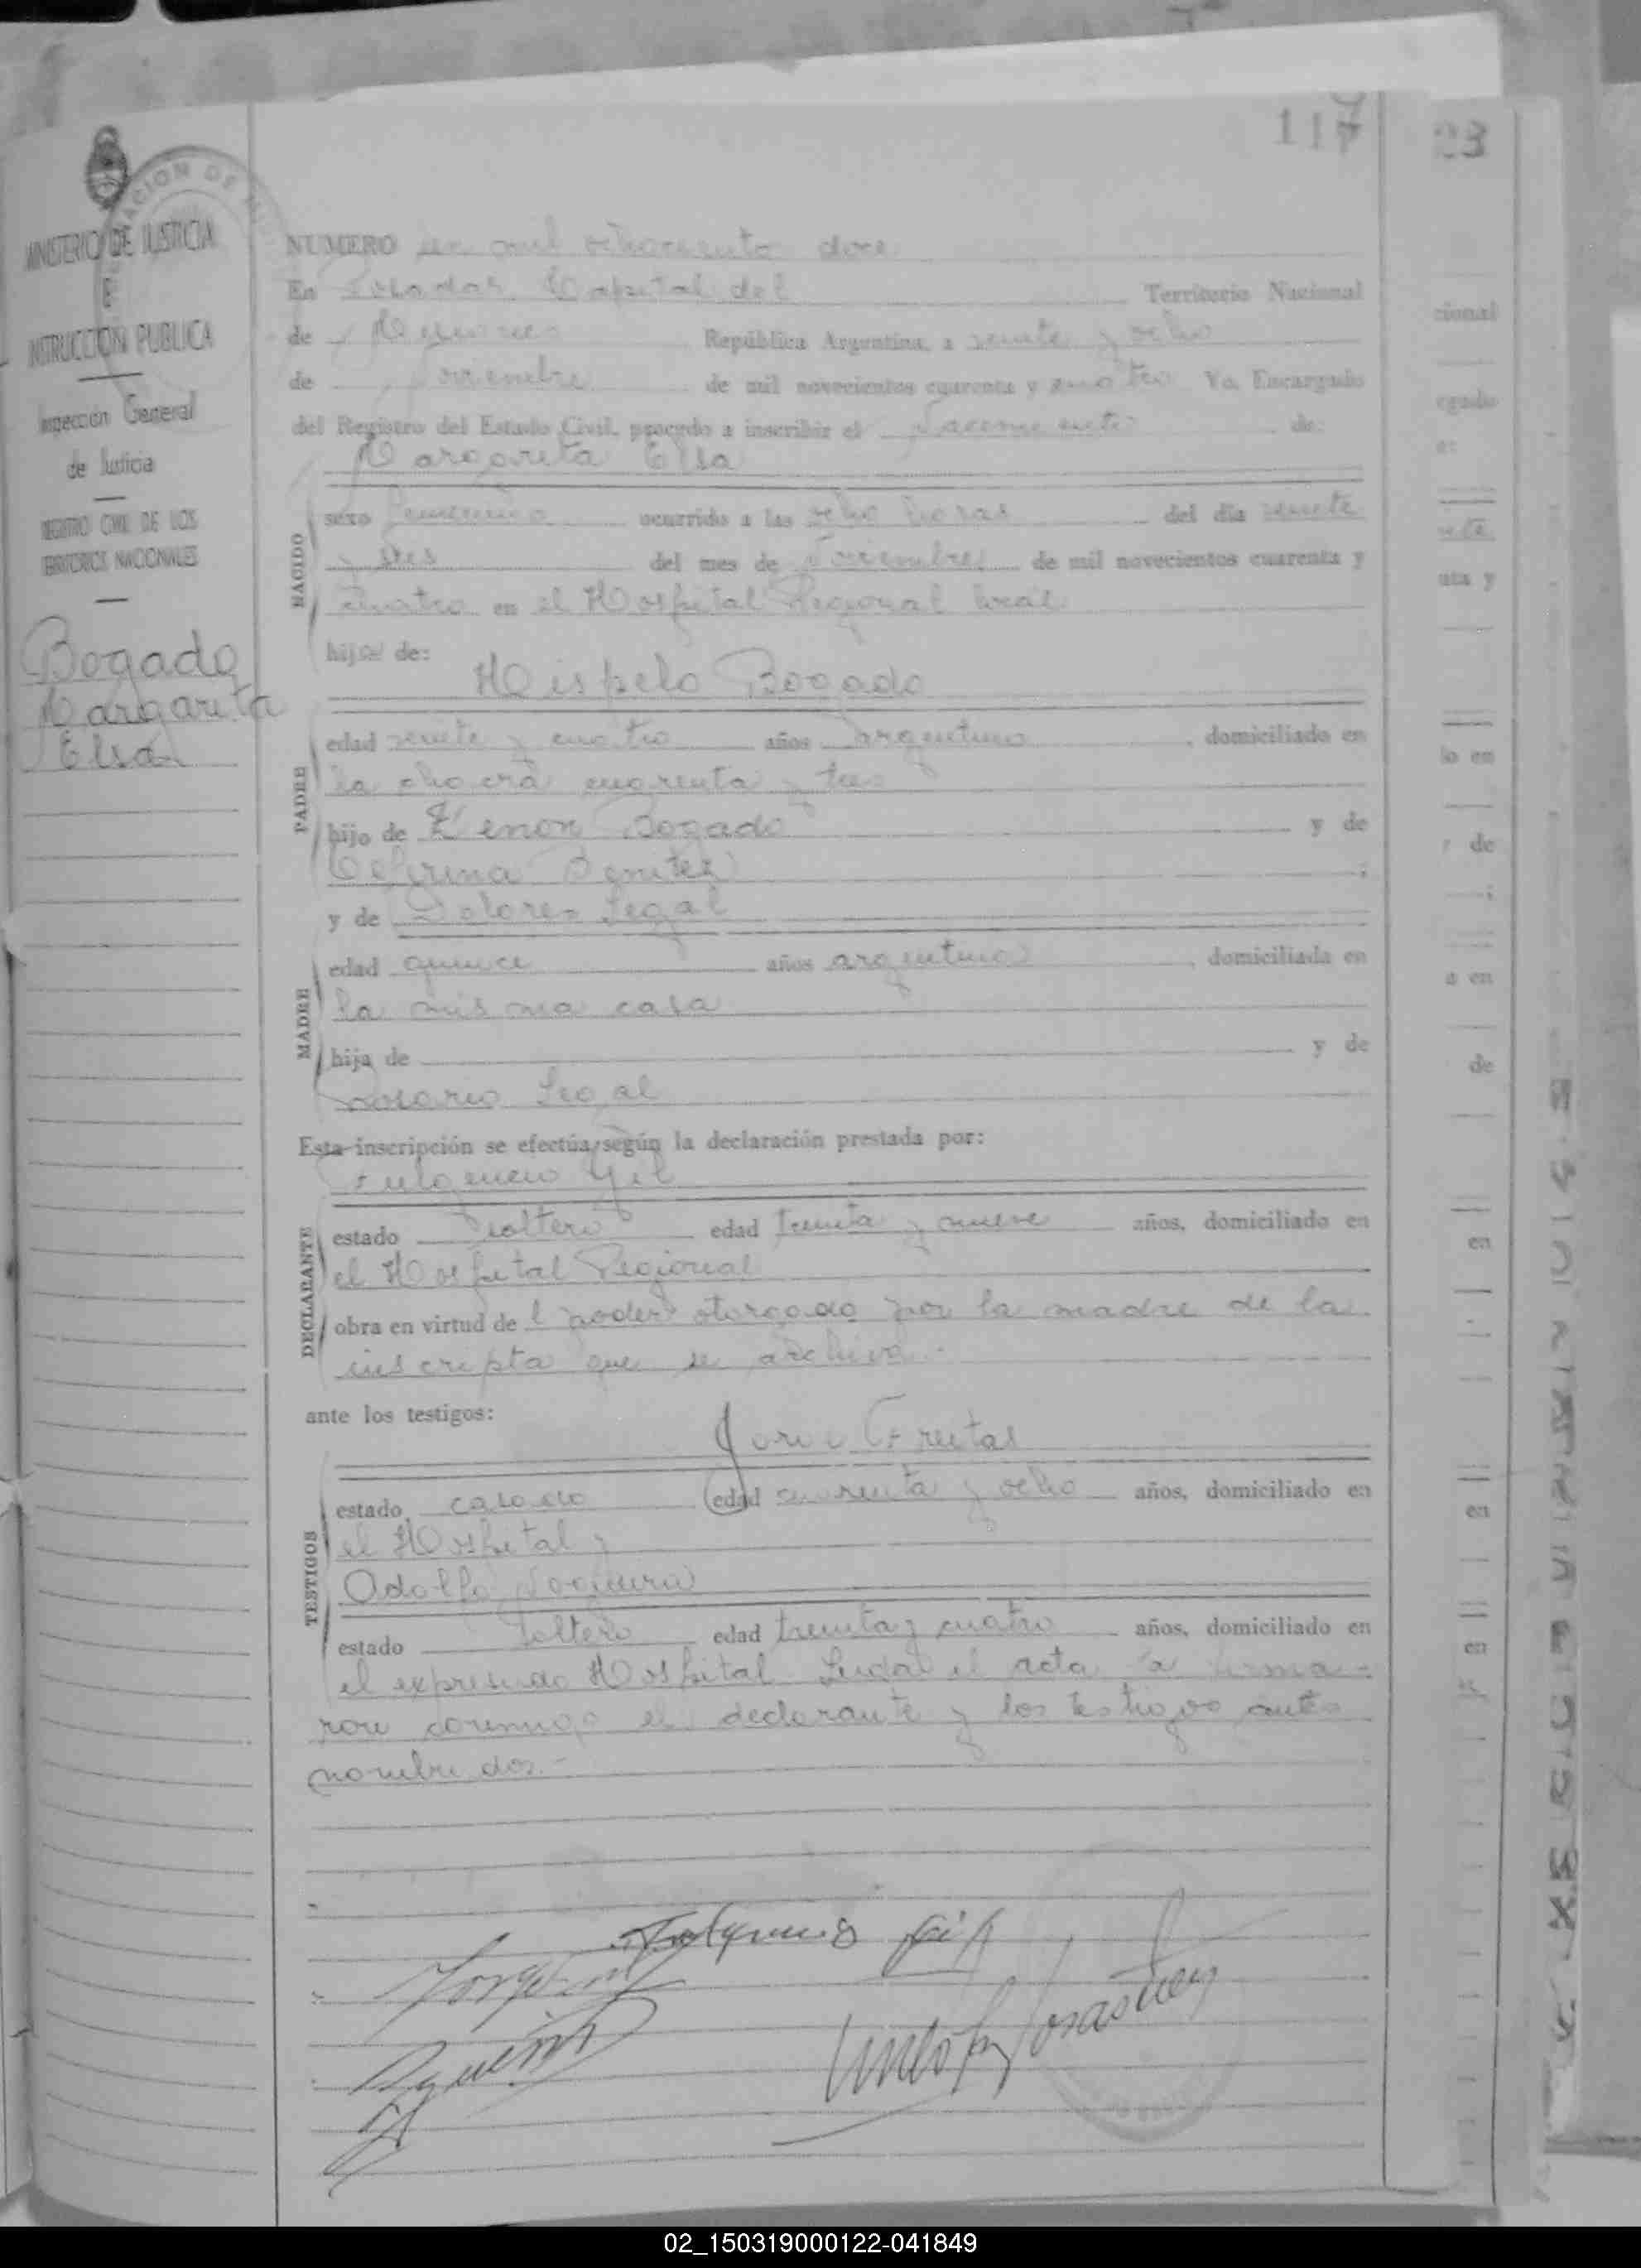 117
23
MINISTERIO DE JUSTICIA
E
INSTRUCCION PUBLICA
Inspección General
de Justicia
REGISTRO CIVIL DE LOS
TERRITORIOS NACIONALES
Bogado
Margarita
Elsa
NUMERO un mil ochociento doce
En Posadas Capital del Territorio Nacional
de Misiones República Argentina, a veinte y ocho
de noviembre de mil novecientos cuarenta y cuatro Yo, Encargado
del Registro del Estado Civil, procedo a inscribir el nacimiento de:
Margarita Elsa
NACIDO
sexo femenino ocurrido a las ocho horas del día veinte
y tres del mes de noviembre de mil novecientos cuarenta y
cuatro en el Hospital Regional local
hija de:
Mispelo Bogado
PADRE
edad veinte y cuatro años argentino, domiciliado en
la chacra cuarenta y tres
hijo de Zenon Bogado y de
Ceferina Benitez;
y de Dolores Legal
MADRE
edad quince años argentina, domiciliada en
la misma casa
hija de y de
Rosario Legal
Esta inscripción se efectúa según la declaración prestada por:
Fulgencio Gil
DECLARANTE
estado soltero edad treinta y nueve años, domiciliado en
el Hospital Regional
obra en virtud de l poder otorgado por la madre de la
inscripta que se archiva.-
ante los testigos:
Jorge Freitas
TESTIGOS
estado casado edad cuarenta y ocho años, domiciliado en
el Hospital y
Adolfo Noguera
estado soltero edad treinta y cuatro años, domiciliado en
el expresado Hospital Leida el acta la firma-
ron conmigo el declarante y los testigos ante
nombrados.-
Fulgencio Gil
02_150319000122-041849